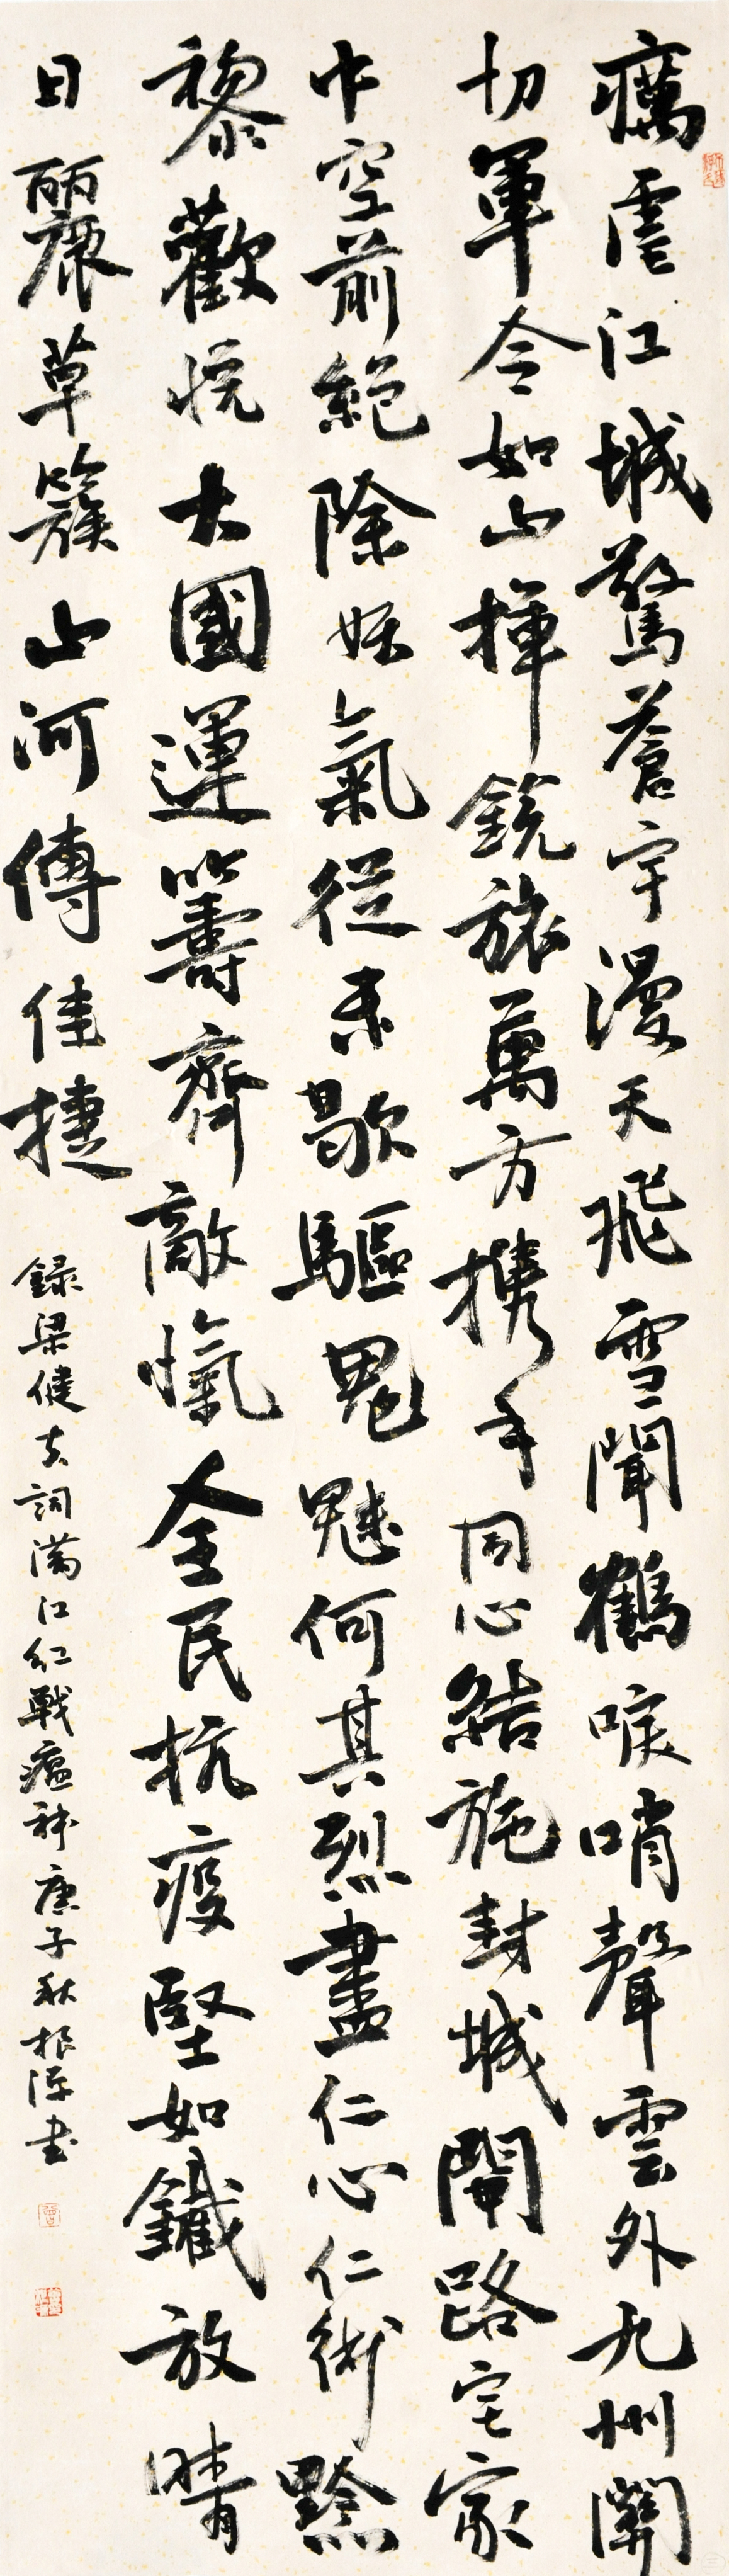 癘虐江城驚蒼宇漫天飛雪聞鶴唳哨聲雲外九州關
切軍令如山揮銳旅萬方携手同心結施封城閘路宅家
中空前絕除妖氣從未歇驅鬼魅何其烈盡仁心仁術黔
黎歡悅大國運籌齊敵愾全民抗疫堅如鐵放晴
日麗草簇山河傳佳捷
録梁健夫詞滿江紅戰瘟神庚子秋根深书